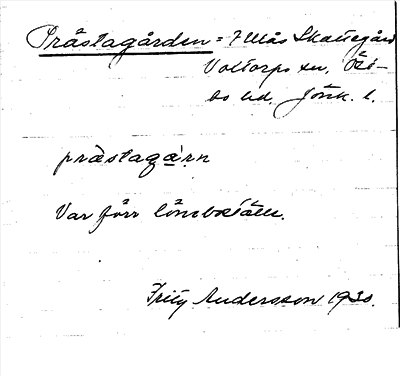 Prästagården = 7 Ulås Skattegård
Valtorps sn,
bo hd. Jönk. l.
prästagα̊:rn
Var förr löneboställe.
Fritz Andersson 1930.